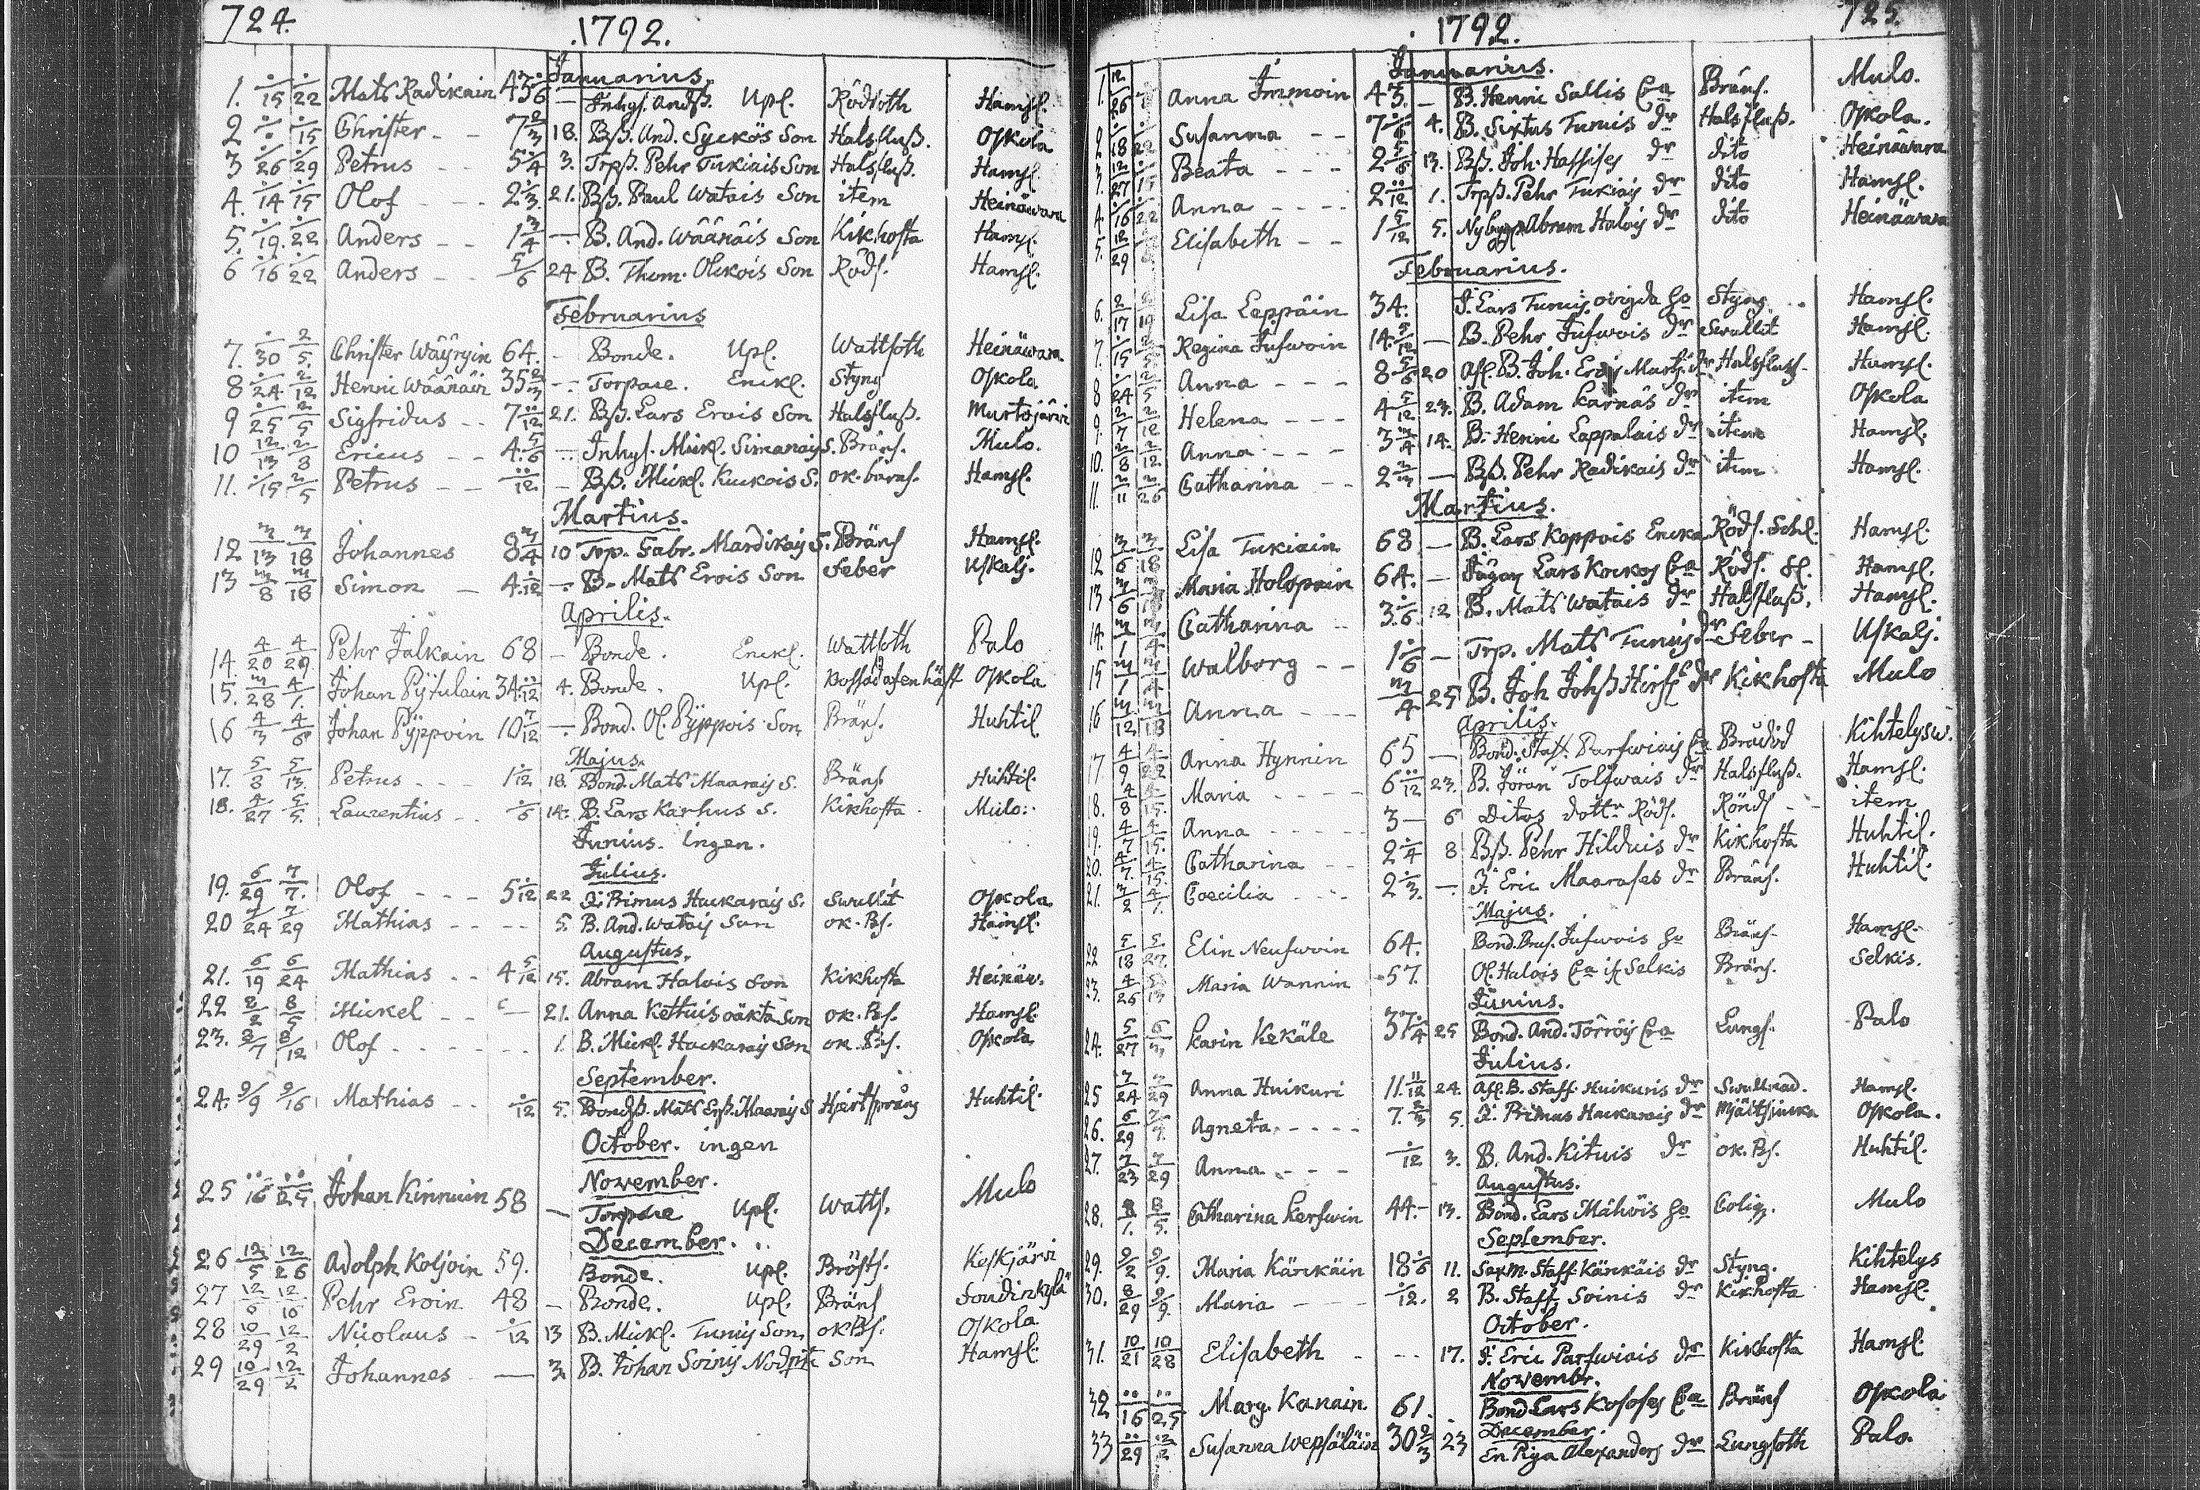 724. 1792.
Januarius.
1. ·/15 ·/22 Mats Radikain 45 ·/6 — Inhys. Andß. Upl. Rödsoth Hamsl.
2 ·/· ·/15 Christer - - 7 2/3 18. Bß. And. Syckös Son Halsfluß. Oskola
3 ·/26 ·/29 Petrus - - 5 ·/4 3. Trpß. Pehr Tukiais Son Halsfluß. Hamsl.
4. ·/14 ·/15 Olof - - - 2 ·/3 21. Bß. Paul Watais Son item Heinäwara
5. ·/19. ·/22 Anders - - 1 3/4 — B. And. Wäänäis Son Kikhosta Hamsl.
6 ·/16 ·/22 Anders - - 5/6 24 B. Thom. Olikois Son Röds. Hamsl.
Februarius
7. ·/30 2/5. Christer Wäyryin 64. - Bonde. Upl. Wattsoth Heinäwara
8 ·/24 2/12 Henric Wäänäin 35 2/3 — Torpare. Enckl. Styng Oskola
9 ·/25 2/5 Sigfridus - - 7 ··/12 21. Bß. Lars Erois Son Halsfluß. Murtojärvi
10 12/13 2/8 Ericus - - 4. 5/6 — Inhys. Mickl. Simanais S. Bräns. Mulo.
11. ·/15 2/5 Petrus - - ··/12 - Bß. Mickl. Kuckois S. ok. barns. Hamsl.
Martius.
12 3/13 3/18 Johannes 8 3/4 10 Trp. Gabr. Mardikais S. Bräns Hamsl.
13 3/8 3/18 Simon - 4. ·/12 — B. Mats Erois Son Feber Uskalj.
Aprilis.
14. 4/20 4/29 Pehr Jalkain 68 - Bonde. Enckl. Wattsoth Palo
15. 3/28 4/1. Johan Pÿtulain 34. ··/12 4. Bonde. Upl. Oskola
16 4/3 4/6 Johan Pÿppoin 10 7/12 — Bond. Ol. Pÿppois Son Bräns. Huhtil
Majus.
17. 5/8 5/13. Petrus - - - 1 ·/12 18. Bond. Mats Maarais S. Bräns Huhtil.
18. 4/27 5/5. Laurentius - - ·/6 14. B. Lars Karhus S. Kikhosta Mulo.
Junius. ingen.
Julius.
19. 6/29 7/7. Olof - - 5 ·/12 22 J. Primus Hackarais S. Swullit Oskola
20 7/24 7/29 Mathias - - - - 5. B. And. Watais Son ok. Bs. Hamsl.
Augustus.
21. 6/19 6/24 Mathias - - 4 5/12 15. Abram Halois Son Kikhosta Heinäw.
22 8/2 8/5 Mickel - - — 21. Anna Kettuis oäkta Son ok. Bs. Hamsl.
23. 8/7 8/12 Olof - - - - - 1. B. Mickl. Hackarais Son ok. Bs. Oskola
September.
24. 9/9 9/16 Mathias - - ·/12 5. Bondß. Mats Erß. Maarais S Hjertsprång Huhtil.
October. ingen
November.
25 ··/16 ··/25 Johan Kinnuin 58 — Torpare Upl. Watts. Mulo
December.
26 12/5 12/26 Adolph Koljoin 59. Bonde. Upl. Bröstf. Keskjärvi
27 12/9 12/16 Pehr Eroin 48 - Bonde. Upl. Bräns Soudinkylä
28 10/29 12/2 Nicolaus - ·/12 13 B. Mickl. Tunis Son ok Bs. Oskola
29 10/29 12/2 Johannes - — 3 B. Johan Soinis Nodpt Son Hamsl.
1792. 725.
Januarius.
1. 12/26 Anna Immoin 43. — B. Henric Sallis Ea Bräns. Mulo.
2 ·/18 ·/22 Susanna - - 7 ·/6 4. B. Sixtus Tunis dr Halsfluß. Oskola.
3. 12/27 ·/15 Beata - - - 2 5/6 13. Bß. Joh. Hassises dr dito Heinäwara
4 ·/16 ·/22 Anna - - - - 2 ··/12 1. Trpß. Pehr Tukiais dr dito Hamsl.
5. 12/29 Elisabeth - - 1 5/12 5. Abram Halois dr dito Heinäwara
Februarius.
6. 2/17 2/19 Lisa Leppäin 34. J. Lars Tunis. ovigda Ho Styng. Hamsl.
7. ·/15 Regina Jufwoin 14. 5/12 — B. Pehr Jufwois dr Swullit Hamsl.
8 ·/24 2/5 Anna - - - 8 5/6 20 Afl. B. Joh. Halsfluß Hamsl.
9. 2/7 2/12 Helena - - - 4 5/12 23. B. Adam Karnäs dr item Oskola
10. 2/8 2/12 Anna - - - 3 3/4 14. B. Henric Lappalais dr item Hamsl.
11. 2/11 2/26 Catharina - - 2 2/3 — Bß. Pehr Radikais dr item Hamsl.
Martius.
12 3/6 3/18 Lisa Tukiain 68 — B. Lars Koppois Encka Röds. Hamsl.
13 3/6 Maria Holopain 64. — Lars Kockos Ea Röds. Hamsl.
14. 3/1 3/4 Catharina - 3. ·/6. 12 B. Mats Watais dr Halsfluß. Hamsl.
15 3/1 3/4 Walborg - - 1 ·/6 — Trp. Mats Tunis dr Feber - Uskalj.
16 3/12 3/18 Anna - - - 3/4 25 B. Joh Johß Hirs dr Kikhosta Mulo
Aprilis.
17. 4/9 4/22 Anna Hynnin 65 — Bond. Staff. Parfwiais Ea Brådöd Kihtelysw.
18. 4/8 4/15. Maria - - - - 6 ··/12 23. B. Jöran Tolfwais dr Halsfluß. Hamsl.
19. 4/7 4/15. Anna - - - - - 3 — 6 Ditos dottr Röds. Röds - - item
20. 4/7. 4/15. Catharina - - 2 ·/4 8 Bß. Pehr Hilduis dr Kikhosta Huhtil.
21. 3/2 4/1. Coecilia - - - 2 ·/3. — J. Eric Maarases dr Bräns. Huhtil.
Majus.
22 5/18 5/27. Elin Neufwoin 64. Bond. Jufwois Ho Bräns. Hamsl.
23. 4/26 5/13 Maria Wannin 57. Ol. Halois Ea if Selkis Bräns. Selkis.
Junius.
24. 5/27 6/3 Karin Kekäle 37. ·/4 25 Bond. And. Törröis Ea Lungs. Palo
Julius.
25 7/24 7/29 Anna Huikuri 11. 11/12 24. Afl. B. Staff. Huikuris dr Swullnad. Hamsl.
26. 6/29 7/7. Agneta - - - - - 7. 2/3 5. J. Primus Hackarais dr Mjältsjuka Oskola.
27. 7/23 7/29 Anna - - - ·/12 3. B. And. Kituis dr ok. Bs. Huhtil.
Augustus.
28. 8/1. 8/5. Catharina Kerfwin 44. - 13. Bond. Lars Mähöis Ho Coliq. Mulo
September.
29. 9/2 9/9. Maria Kärckäin 18 ·/6 11. Staff. Kärkäis dr Styng. Kihtelys
30. 8/29 9/9. Maria - - - - ·/12. 2 B. Staff. Soinis dr Kikhosta Hamsl.
October.
31. 10/21 10/28 Elisabeth - - - 17. J. Eric Parfwiais dr Kikhosta Hamsl.
Novembr.
32 ··/16 ··/25 Marg. Kanain 61. Bond Lars Kososes Ea Bräns Oskola.
December.
33 ··/29 12/2 Susanna Wepsäläin 30 2/3 23 En Piga Alexanders dr Lungsoth Palo.